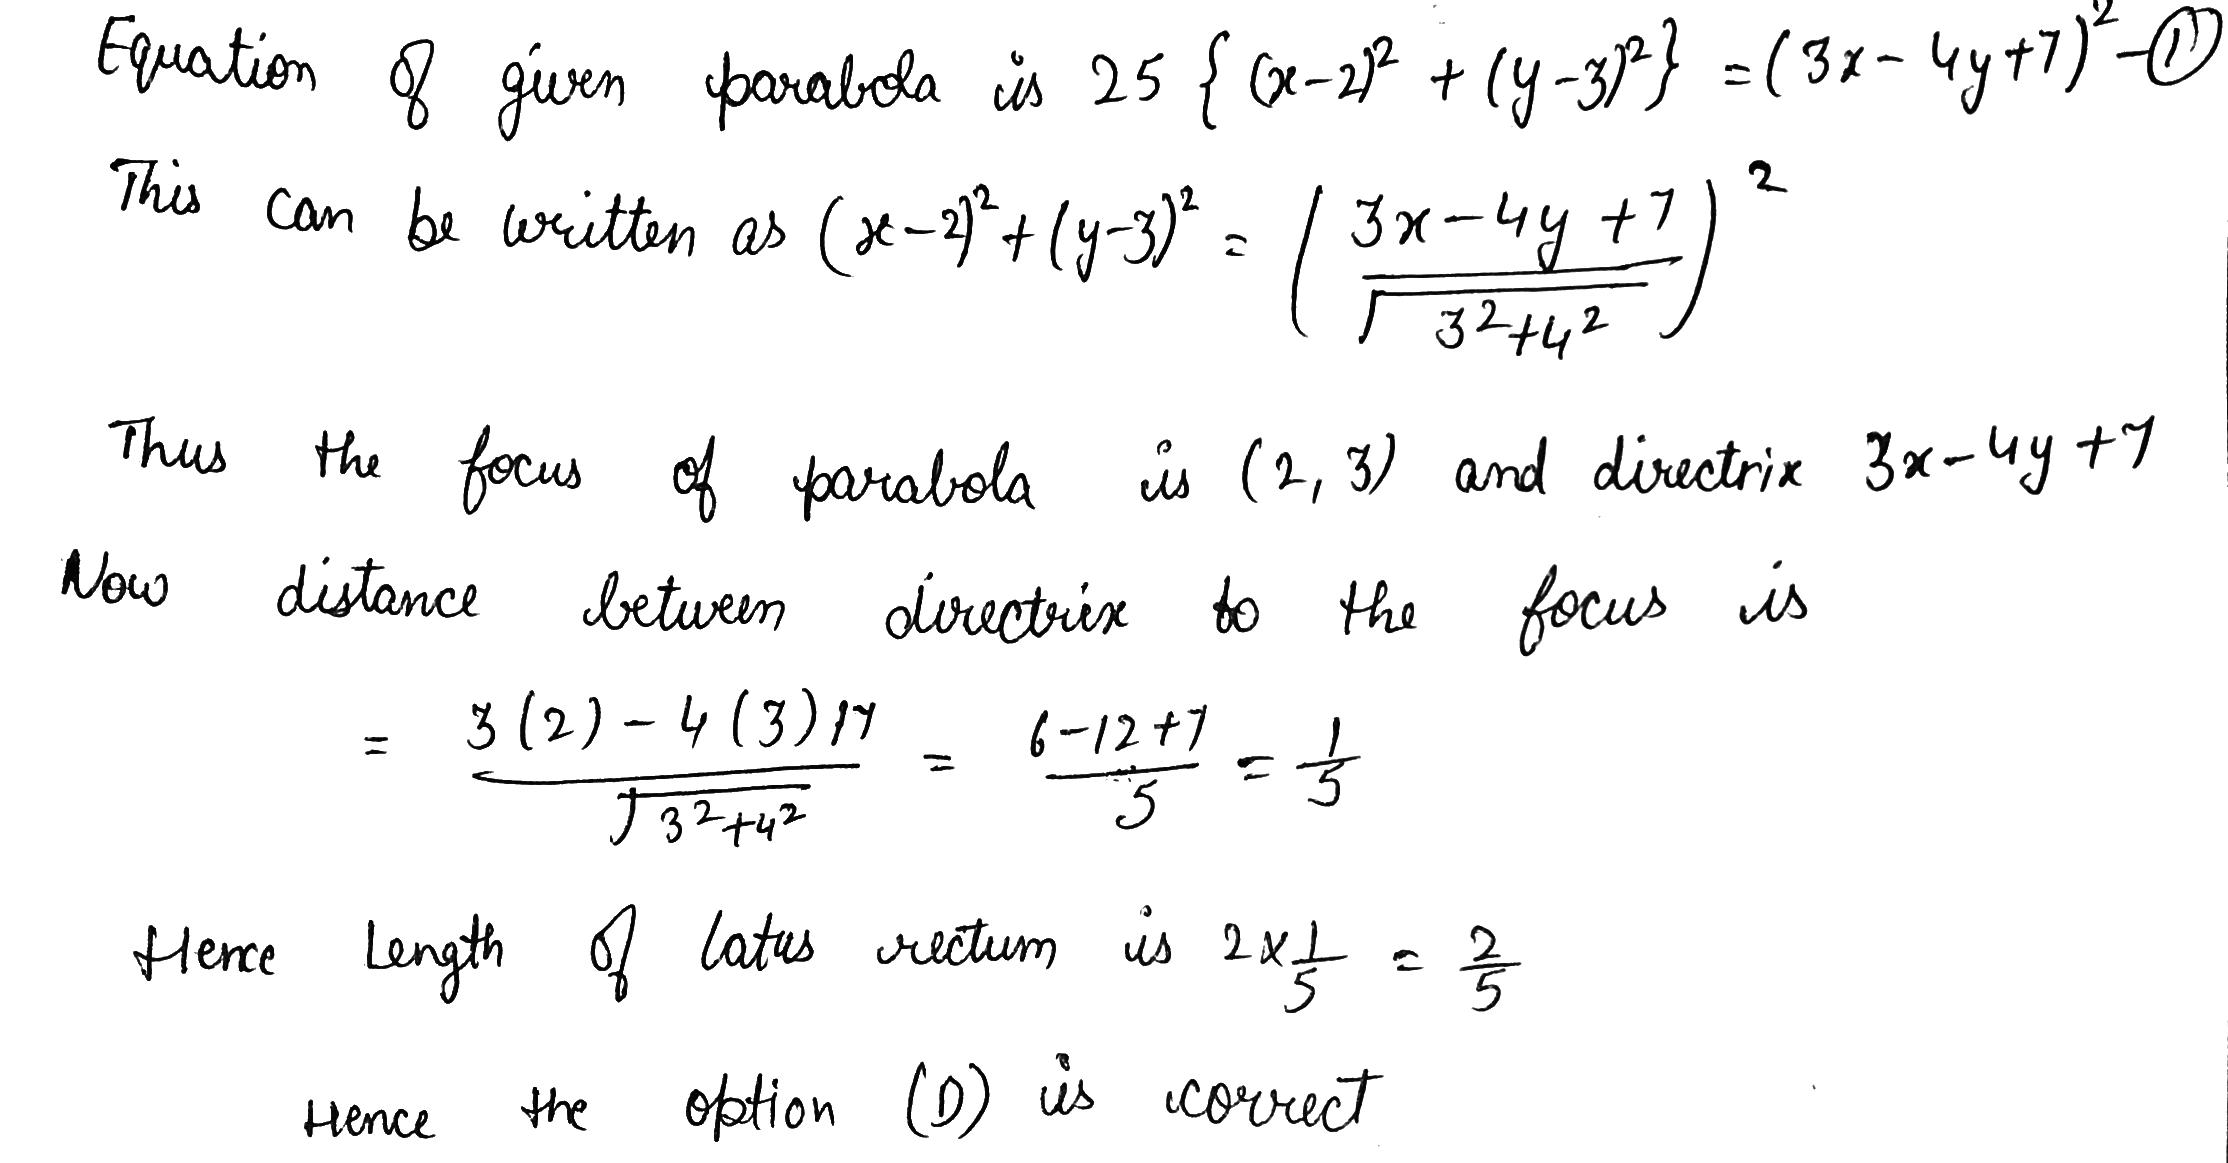 Equation of given parabola is 25 { (x-2)² + (y-3)² } = (3x - 4y+7)² - ①
This can be written as (x-2)² + (y-3)² = ( (3x-4y+7) / √(3²+4²) )²
Thus the focus of parabola is (2, 3) and directrix 3x-4y+7
Now distance between directrix to the focus is
= (3(2) - 4(3)+7) / √(3²+4²) = (6-12+7) / 5 = 1/5
Hence Length of latus rectum is 2 x 1/5 = 2/5
Hence the option (D) is correct